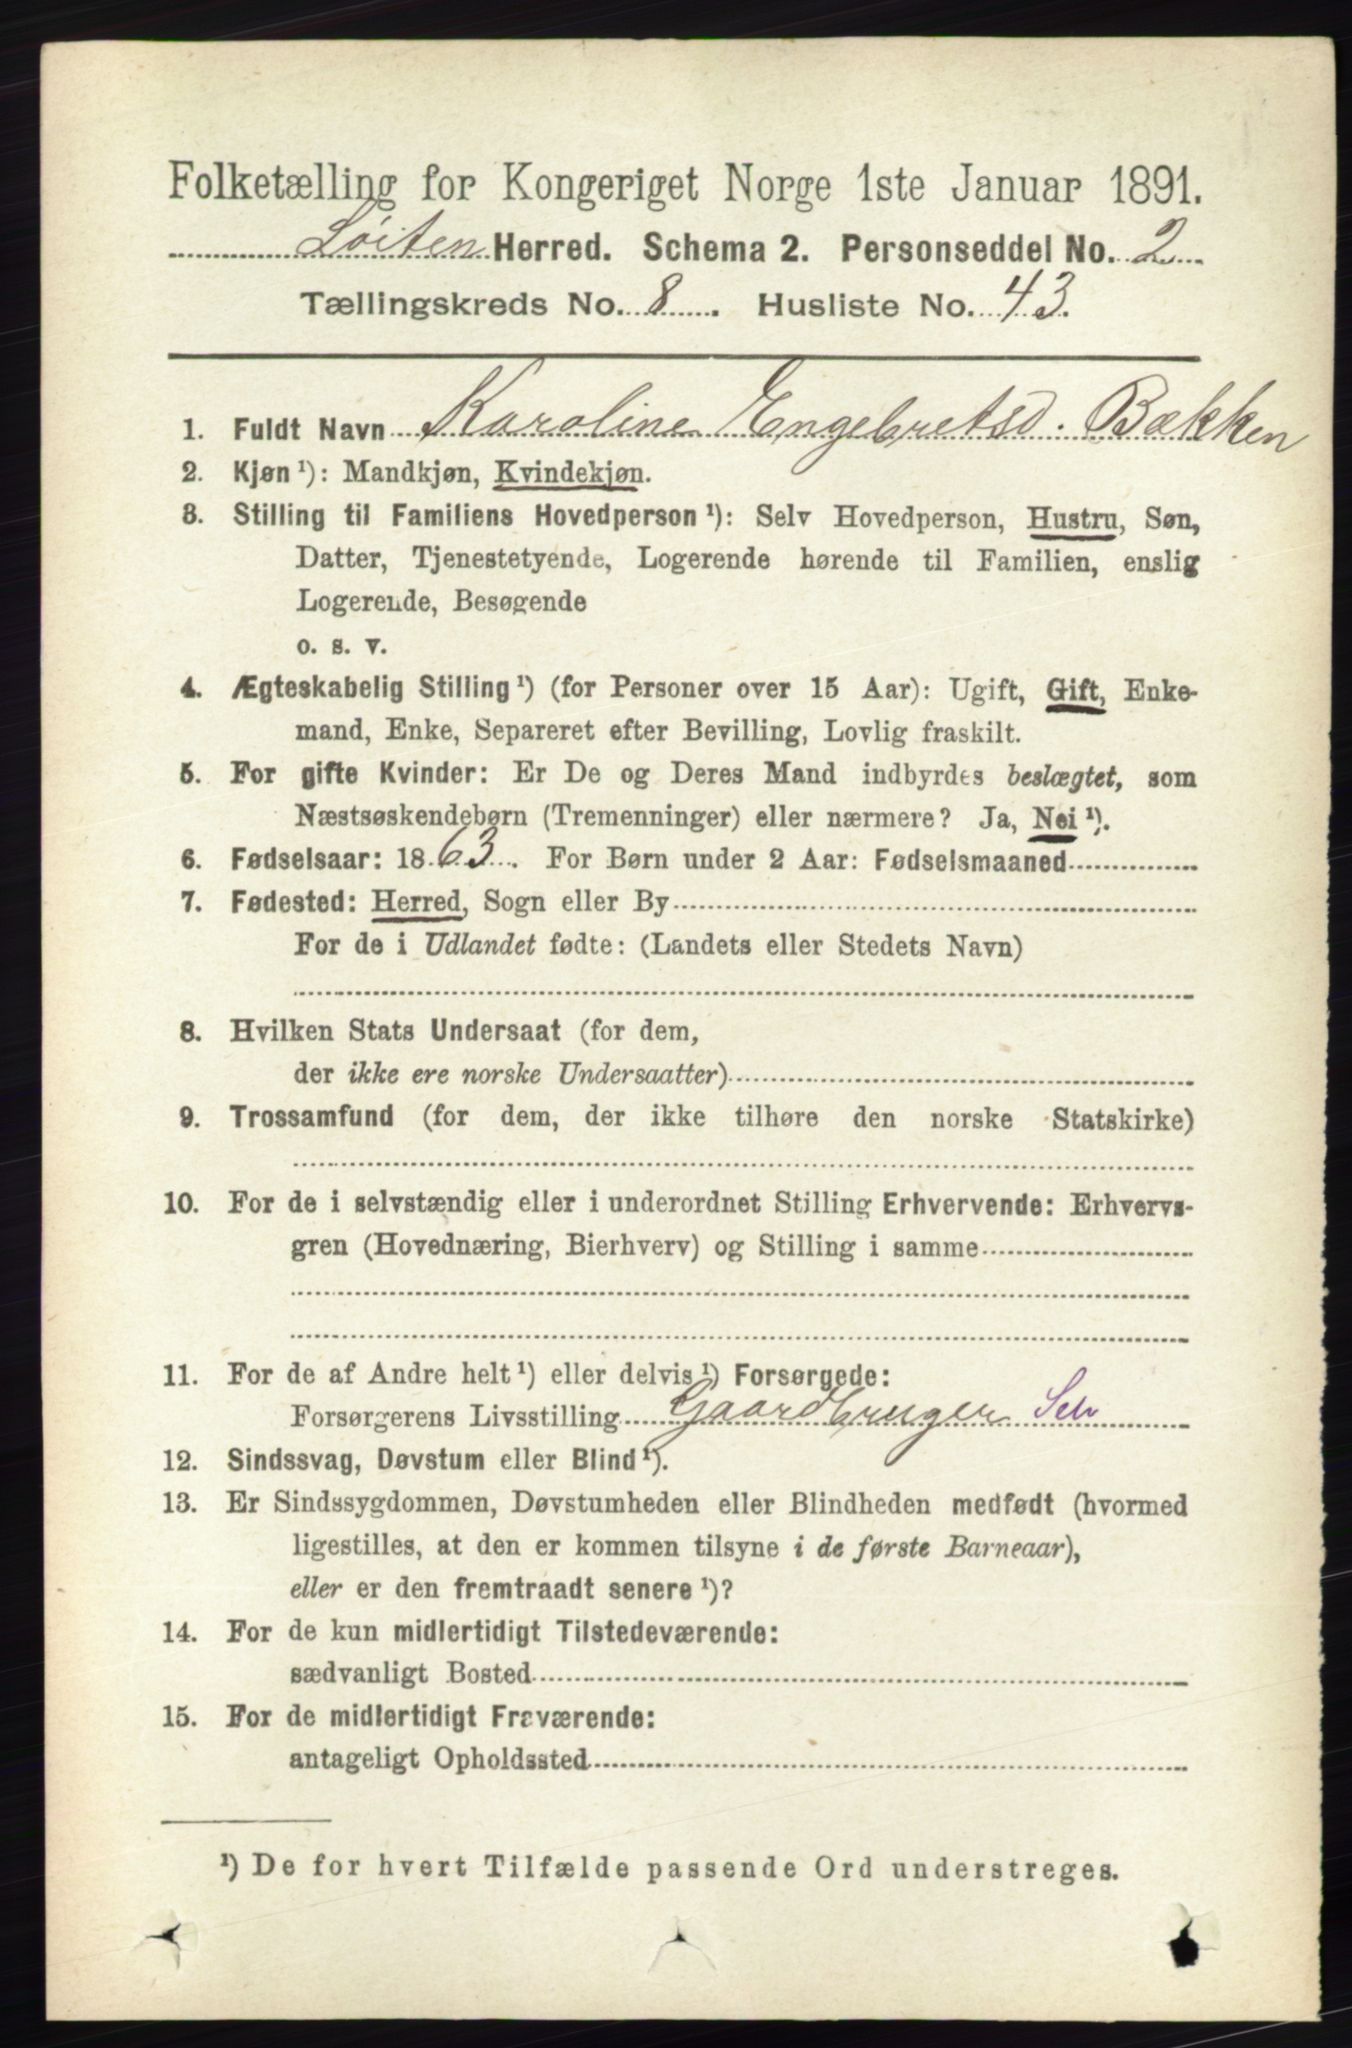 Folketælling for Kongeriget Norge 1ste Januar 1891.
Løiten Herred. Schema 2. Personseddel No. 2
Tællingskreds No. 8. Husliste No. 43.
1. Fuldt Navn Karoline Engebretsd. Bækken
2. Kjøn ¹): Mandkjøn, Kvindekjøn.
3. Stilling til Familiens Hovedperson ¹): Selv Hovedperson, Hustru, Søn,
Datter, Tjenestetyende, Logerende hørende til Familien, enslig
Logerende, Besøgende
o. s. v.
4. Ægteskabelig Stilling ¹) (for Personer over 15 Aar): Ugift, Gift, Enke-
mand, Enke, Separeret efter Bevilling, Lovlig fraskilt.
5. For gifte Kvinder: Er De og Deres Mand indbyrdes beslægtet, som
Næstsøskendebørn (Tremenninger) eller nærmere? Ja, Nei ¹).
6. Fødselsaar: 1863. For Børn under 2 Aar: Fødselsmaaned
7. Fødested: Herred, Sogn eller By
For de i Udlandet fødte: (Landets eller Stedets Navn)
8. Hvilken Stats Undersaat (for dem,
der ikke ere norske Undersaatter)
9. Trossamfund (for dem, der ikke tilhøre den norske Statskirke)
10. For de i selvstændig eller i underordnet Stilling Erhvervende: Erhvervs-
gren (Hovednæring, Bierhverv) og Stilling i samme
11. For de af Andre helt ¹) eller delvis ¹) Forsørgede:
Forsørgerens Livsstilling Gaardbruger Selv
12. Sindssvag, Døvstum eller Blind ¹).
13. Er Sindssygdommen, Døvstumheden eller Blindheden medfødt (hvormed
ligestilles, at den er kommen tilsyne i de første Barneaar),
eller er den fremtraadt senere ¹)?
14. For de kun midlertidigt Tilstedeværende:
sædvanligt Bosted
15. For de midlertidigt Fraværende:
antageligt Opholdssted
¹) De for hvert Tilfælde passende Ord understreges.